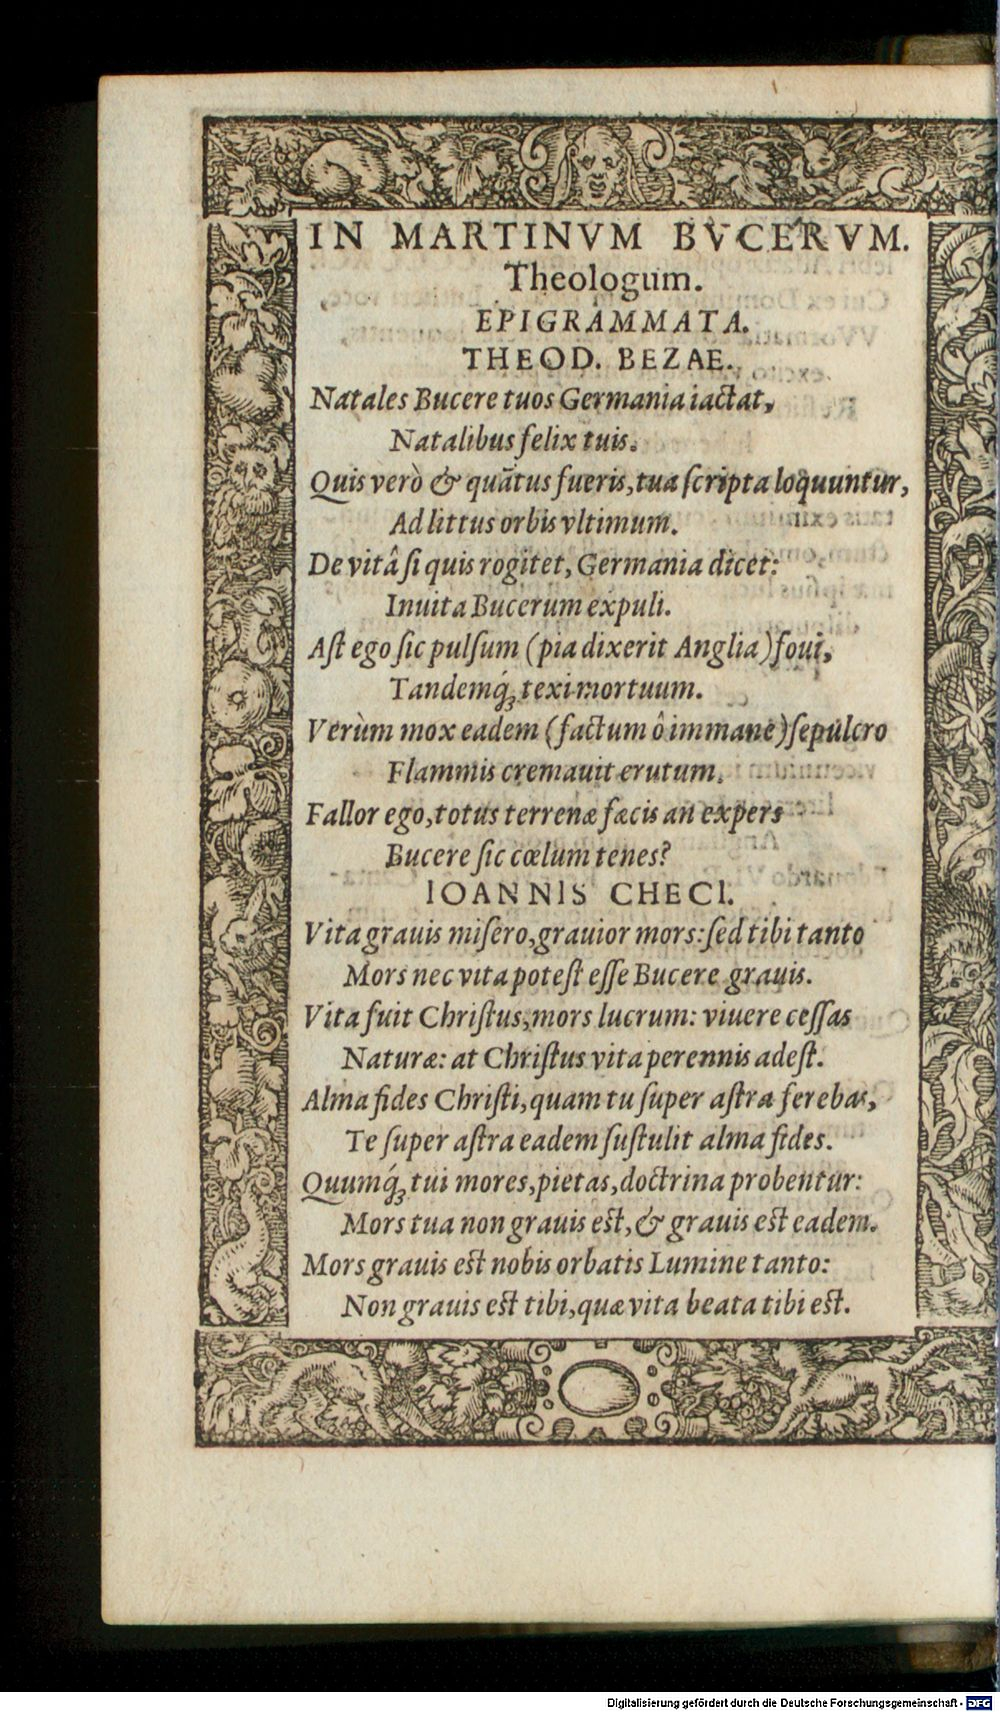 IN MARTINVM BVCERVM.
Theologum.
EPIGRAMMATA.
THEOD. BEZAE.
Natales Bucere tuos Germania iactat,
Natalibus felix tuis.
Quis verò & quãtus fueris, tua ſcripta loquuntur,
Ad littus orbis vltimum.
De vitâ ſi quis rogitet, Germania dicet:
Inuita Bucerum expuli.
Aſt ego ſic pulſum (pia dixerit Anglia) foui,
Tandemq́; texi mortuum.
Verùm mox eadem (factum ô immane) ſepulcro
Flammis cremauit erutum.
Fallor ego, totus terrenæ fæcis an expers
Bucere ſic cœlum tenes?
IOANNIS CHECI.
Vita grauis miſero, grauior mors: ſed tibi tanto
Mors nec vita poteſt eſſe Bucere grauis.
Vita fuit Chriſtus, mors lucrum: viuere ceſſas
Naturæ: at Chriſtus vita perennis adeſt.
Alma fides Chriſti, quam tu ſuper aſtra ferebas,
Te ſuper aſtra eadem ſuſtulit alma fides.
Quumq́; tui mores, pietas, doctrina probentur:
Mors tua non grauis eſt, & grauis eſt eadem.
Mors grauis eſt nobis orbatis Lumine tanto:
Non grauis eſt tibi, quæ vita beata tibi eſt.
Digitalisierung gefördert durch die Deutsche Forschungsgemeinschaft - DFG